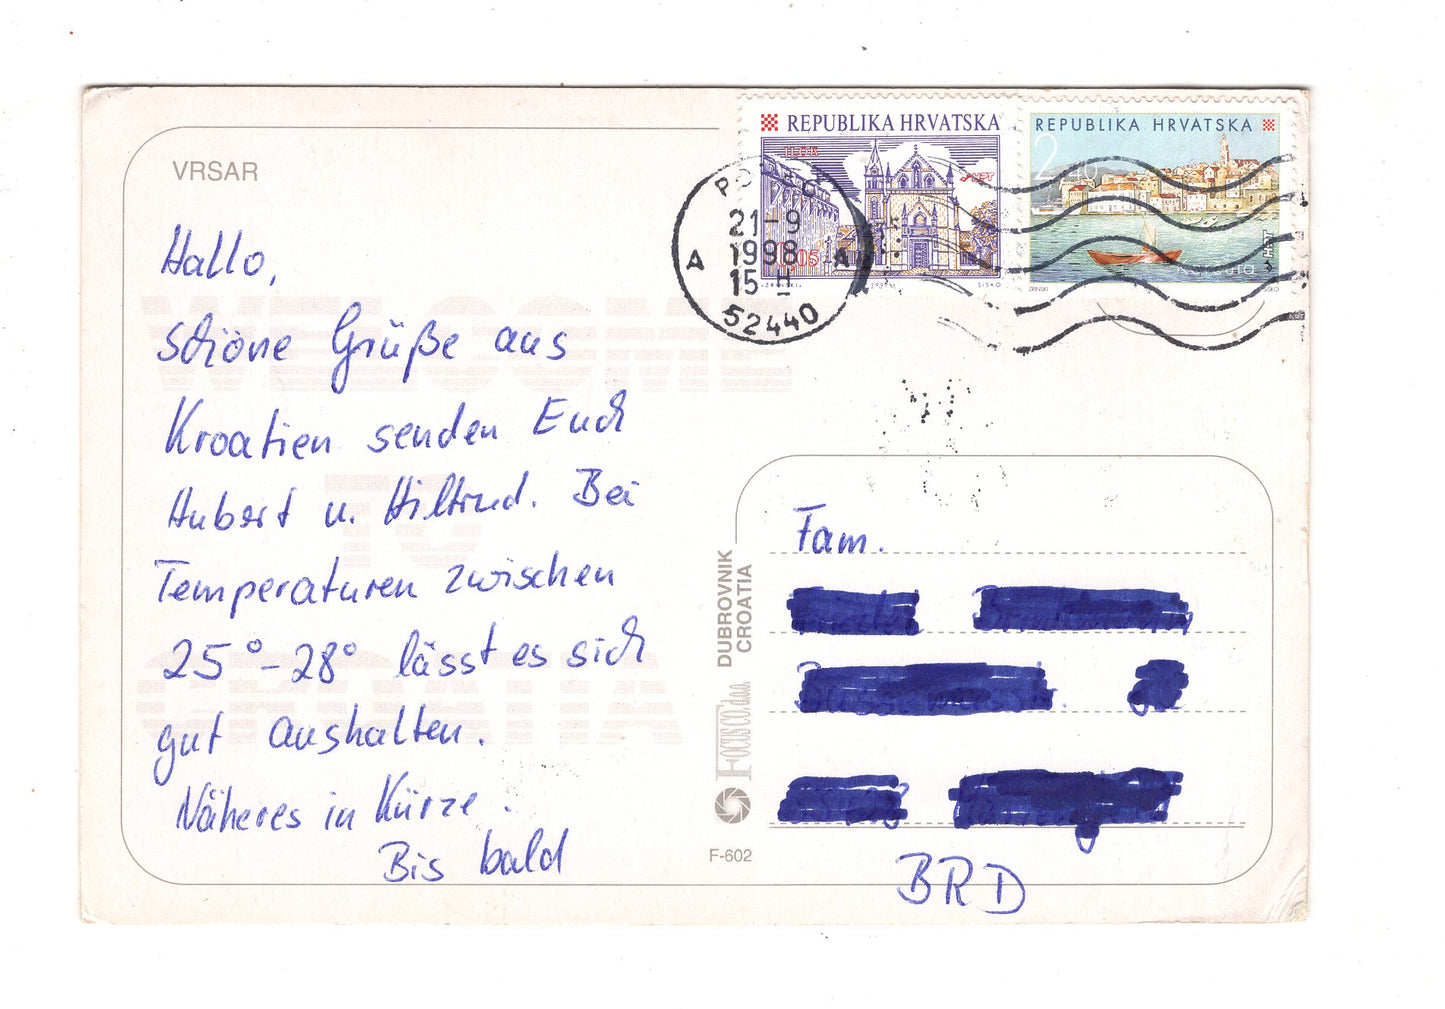 VRSAR
Hallo,
schöne Grüße aus
Kroatien senden Euch
Hubert u. Hiltrud. Bei
Temperaturen zwischen
25°-28° lässt es sich
gut aushalten.
Näheres in Kürze.
Bis bald
WELCOME
TO
CROATIA
REPUBLIKA HRVATSKA
ZRINSKI
SISKO
REPUBLIKA HRVATSKA
2,40
Korčula
HPT
21-9
1998
15 H
A A
52440
DUBROVNIK
CROATIA
FOCUSCO d.o.o.
F-602
Fam.
BRD